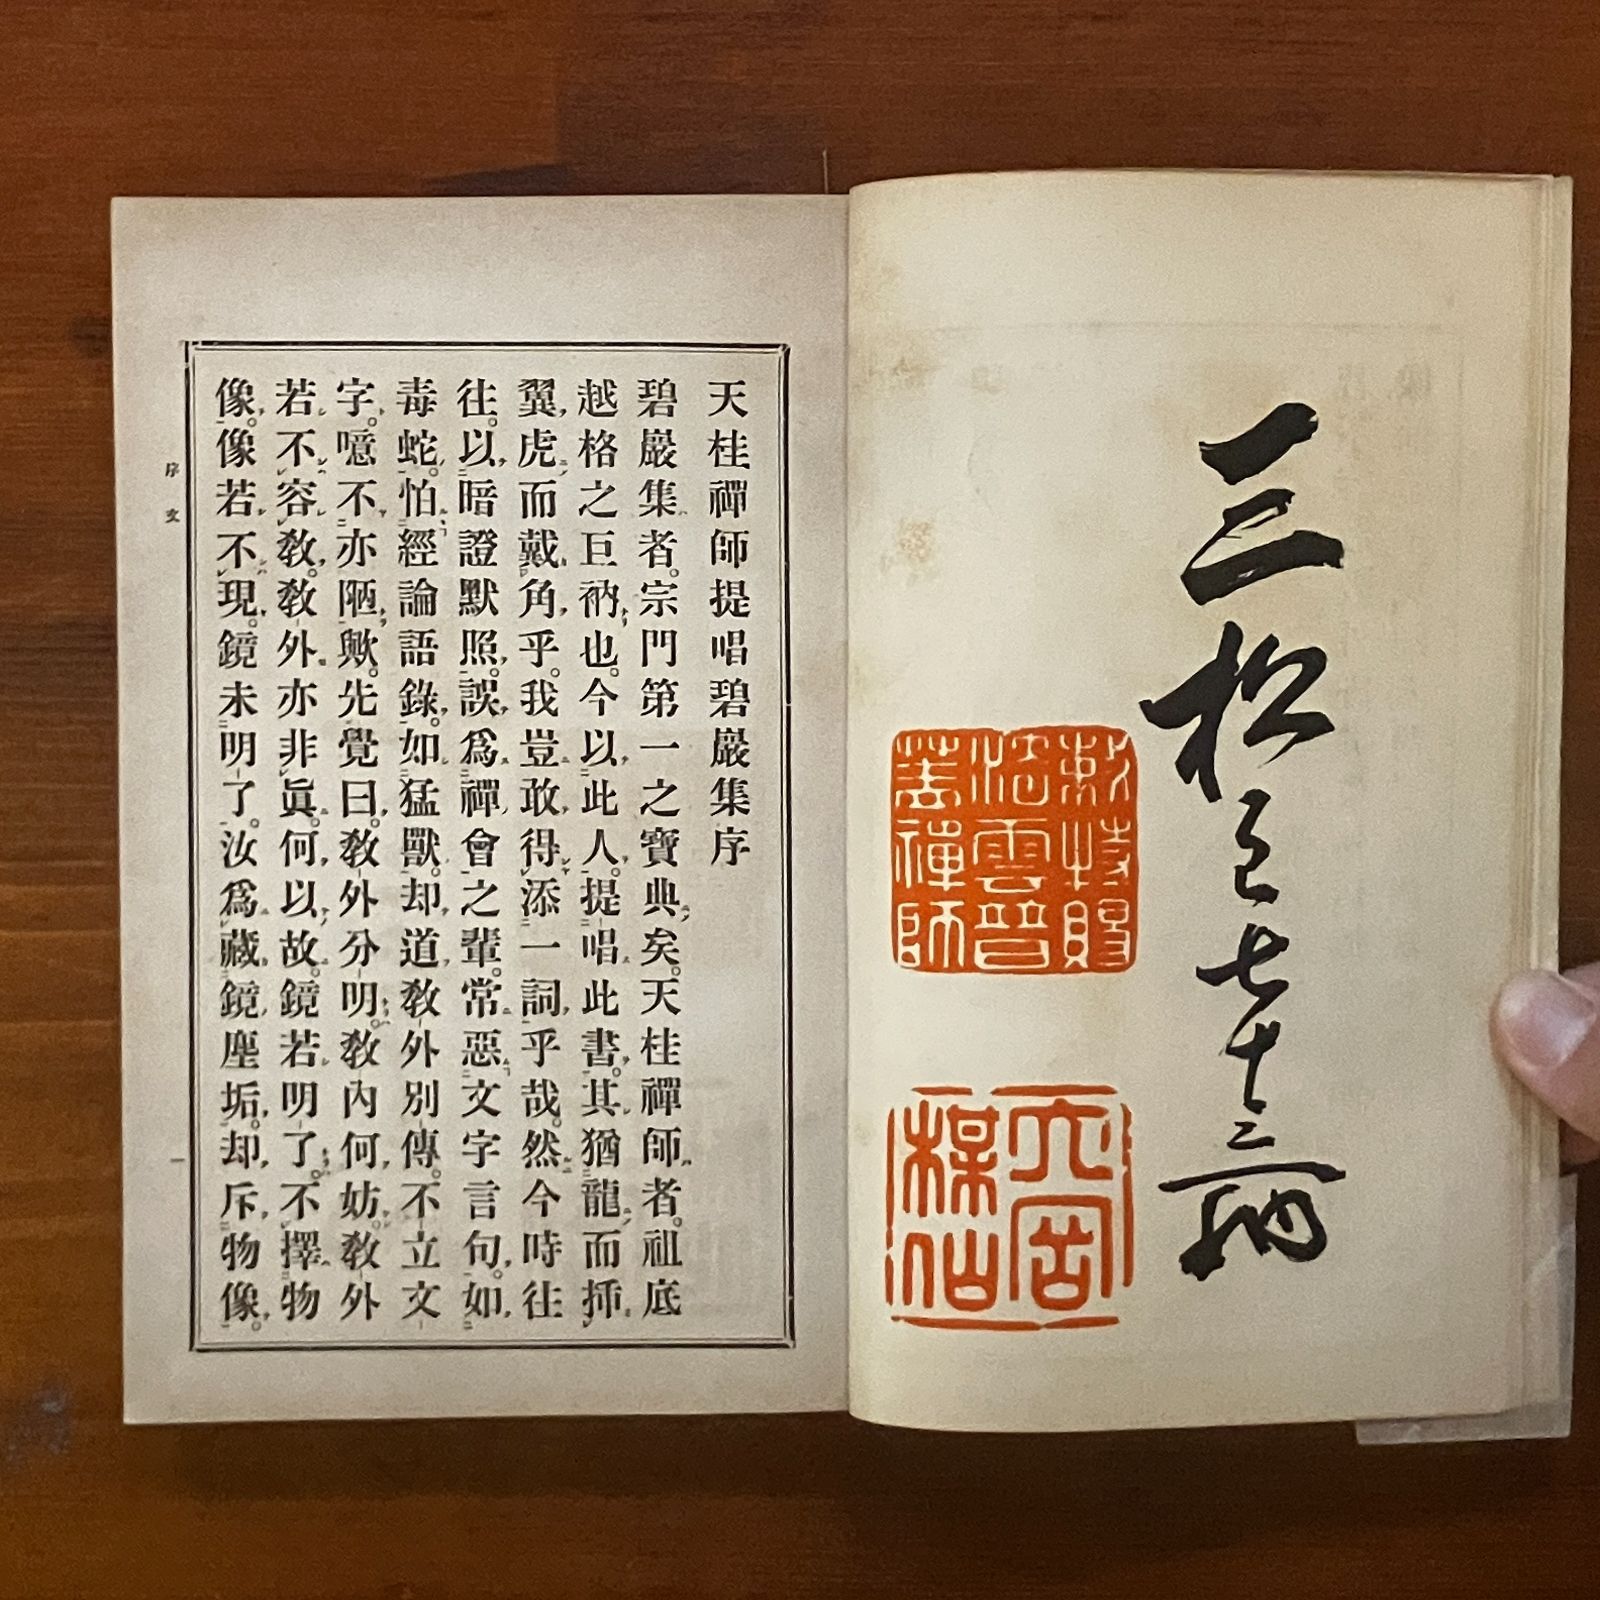 三松七十三衲
敕特賜
法雲普
蓋禪師
大岡
楳仙
天桂禪師提唱碧巖集序
碧巖集者。宗門第一之寶典矣。天桂禪師者。祖底
越格之巨衲也。今以此人。提唱此書。其猶龍而揷
翼,虎而戴角乎。我豈敢得添一詞乎哉。然今時往
往。以暗證默照。誤爲禪會之輩。常惡文字言句。如
毒蛇。怕經論語錄。如猛獸。却道敎外別傳。不立文
字。噫不亦陋歟。先覺曰。敎外分明。敎內何妨。敎外
若不容敎。敎外亦非眞。何以故。鏡若明了。不擇物
像。像若不現。鏡未明了。汝爲藏鏡塵垢。却斥物像。
序文
一